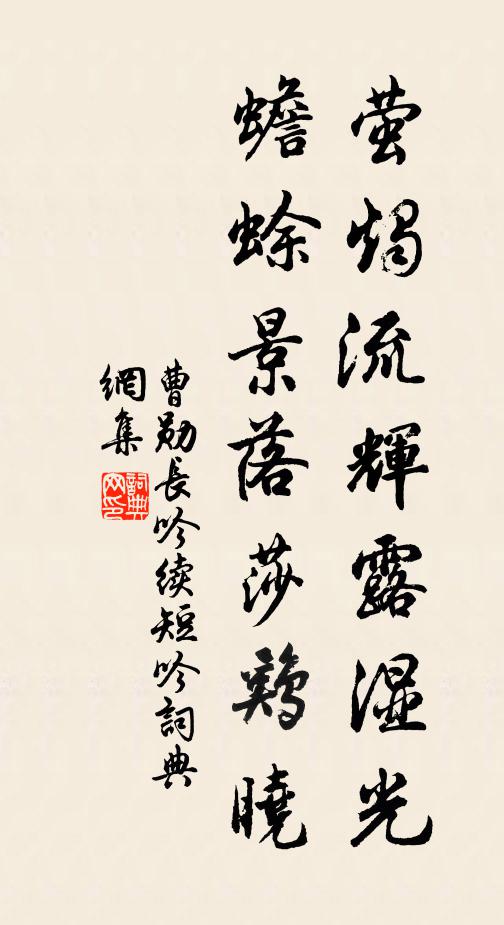 萤烛流輝露湿光
蟾蜍景落莎鷄曉
曹勛長吟续短吟詞典
網集
詞典网印